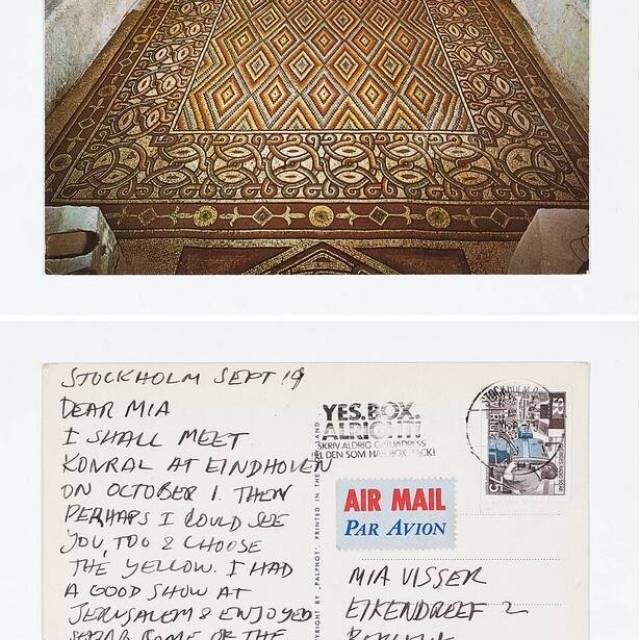 STOCKHOLM SEPT 19
DEAR MIA
I SHALL MEET
KONRAL AT EINDHOVEN
ON OCTOBER 1. THEN
PERHAPS I COULD SEE
YOU, TOO & CHOOSE
THE YELLOW. I HAD
A GOOD SHOW AT
JERUSALEM & ENJOYED
SOME OF THE
YES. BOX.
ALRIGHT!
SKRIV ALDRIG GATUADRESS
TILL DEN SOM HAR BOX. TACK!
STOCKHOLM
AIR MAIL
PAR AVION
BY "PALPHOT". PRINTED IN THE
MIA VISSER
EIKENDREEF 2